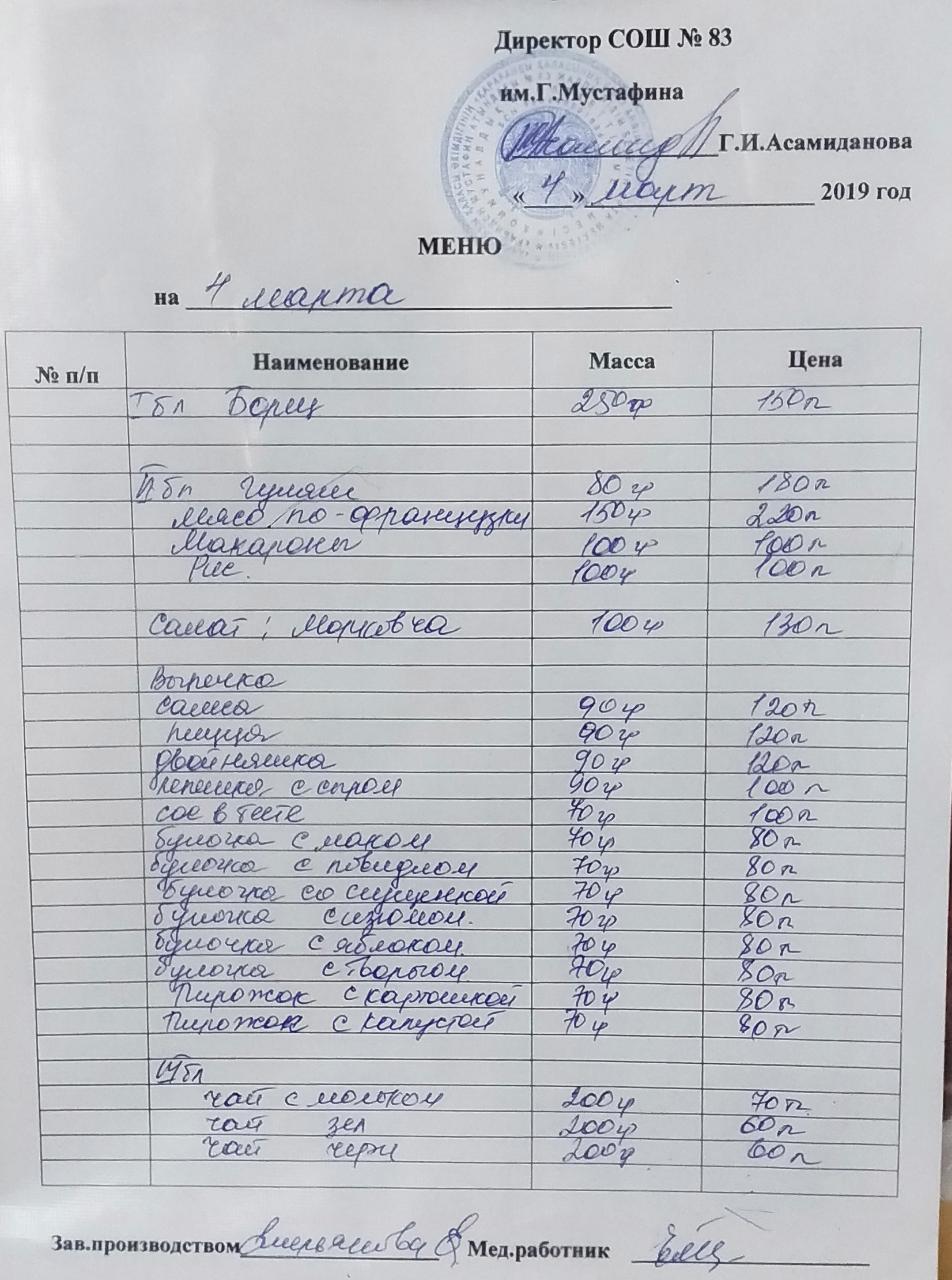 Директор СОШ № 83
им.Г.Мустафина
Г.И.Асамиданова
« 4 » март 2019 год
МЕНЮ
на 4 марта
№ п/п Наименование Масса Цена
I бл Борщ 250гр 150т
II бл гуляш 80гр 180т
мясо по-французки 150гр 220т
Макароны 100гр 100т
Рис. 100гр 100т
Салат: Морковча 100гр 130т
Выпечка
самса 90гр 120т
пицца 90гр 120т
двойняшка 90гр 120т
лепешка с сыром 90гр 100т
сос в тесте 70гр 100т
булочка с маком 70гр 80т
булочка с повидлом 70гр 80т
булочка со сгущенкой 70гр 80т
булочка с изюмом. 70гр 80т
булочка с яблоком 70гр 80т
булочка с творогом 70гр 80т
Пирожок с картошкой 70гр 80т
Пирожок с капустой 70гр 80т
III бл
чай с молоком 200гр 70т
чай зел 200гр 60т
чай черн 200гр 60т
Зав.производством Мед.работник